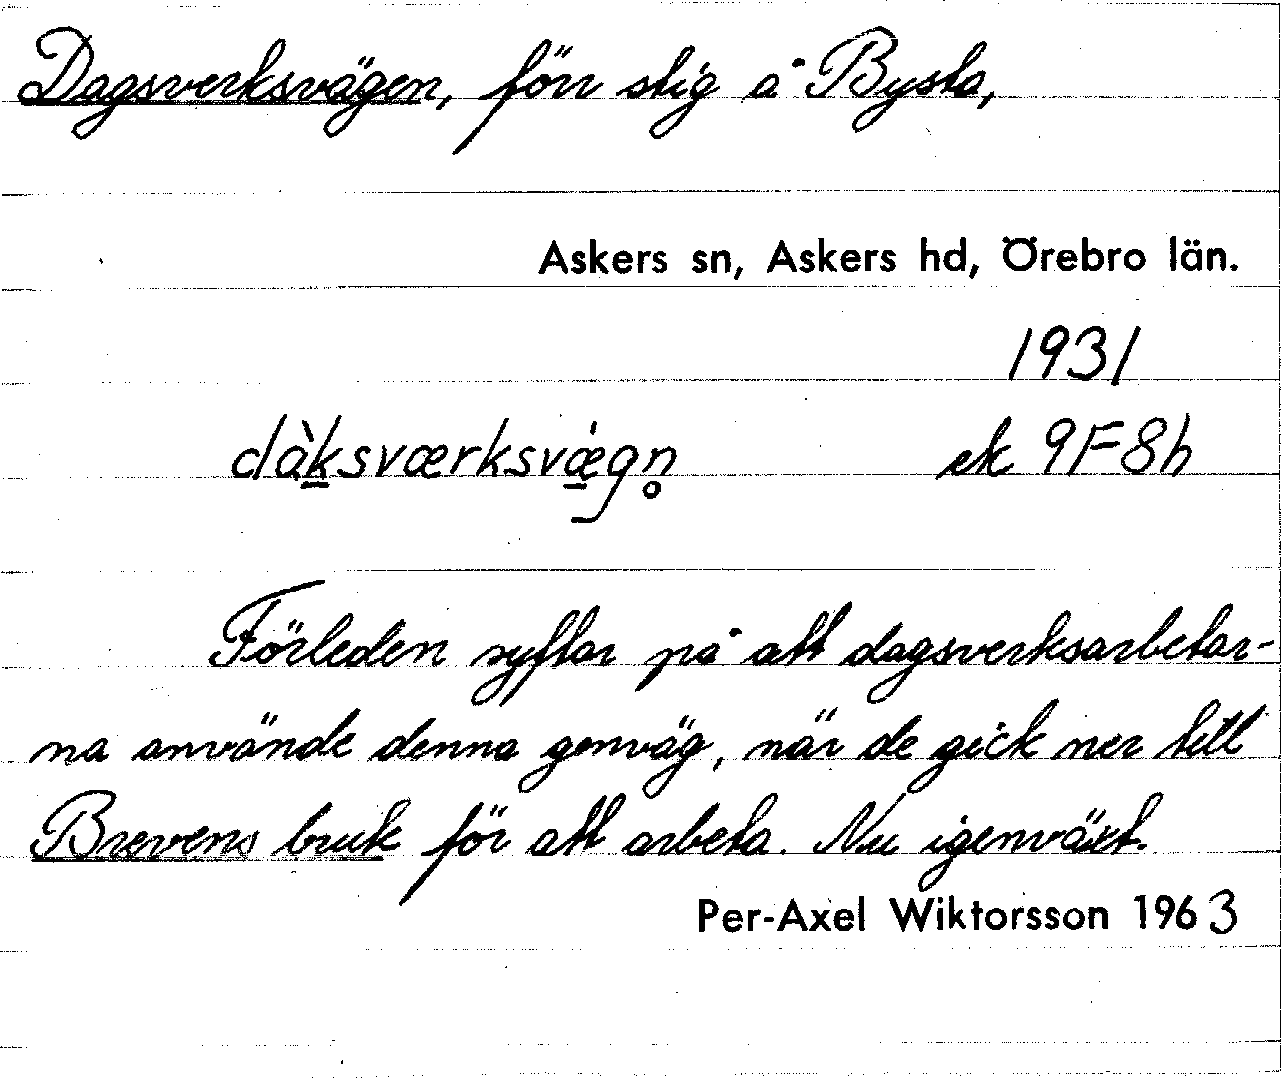 Dagsverksvägen, förr stig å Bysta,
Askers sn, Askers hd, Örebro län.
1931
dàk̲sværksvæ̲̀gn̥ ek 9F8h
Förleden syftar på att dagsverksarbetar-
na använde denna genväg, när de gick ner till
Brevens bruk för att arbeta. Nu igenväxt.
Per-Axel Wiktorsson 1963